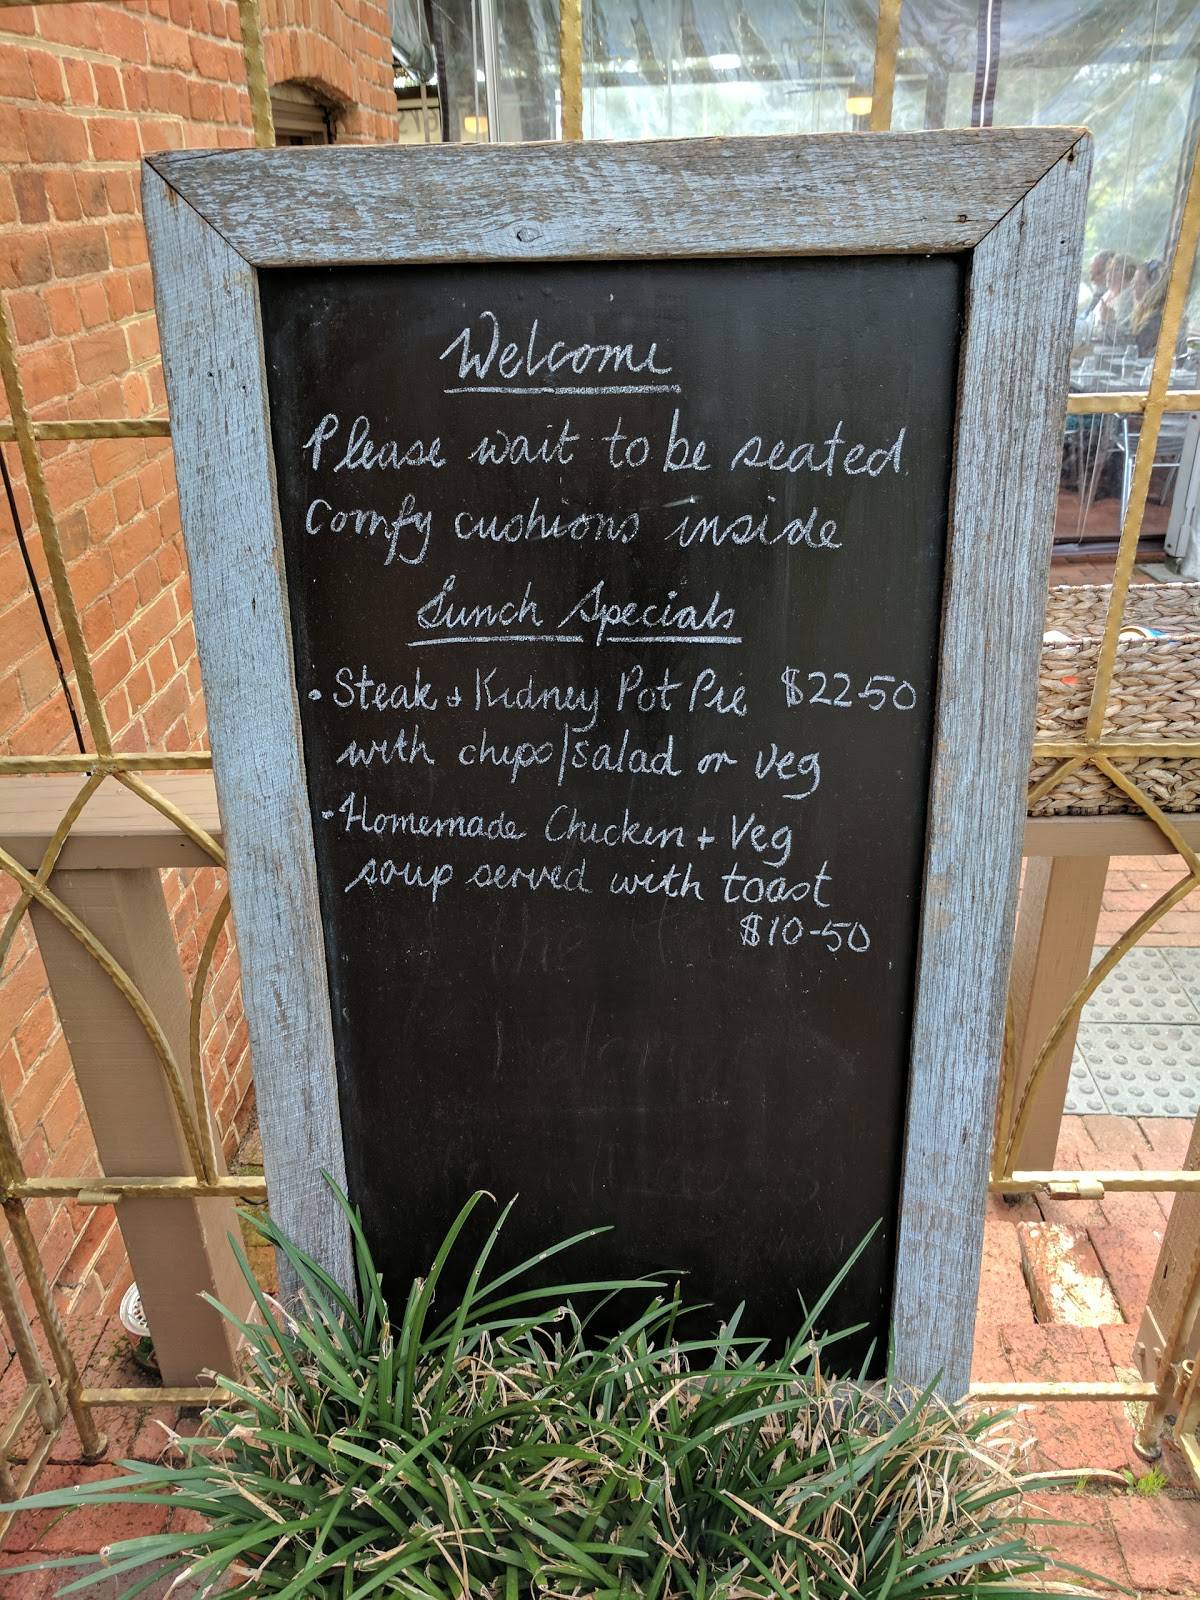 Welcome
Please wait to be seated
Comfy cushions inside
Lunch Specials
• Steak + Kidney Pot Pie $22-50
with chips/salad or veg
- Homemade Chicken + Veg
soup served with toast
$10-50